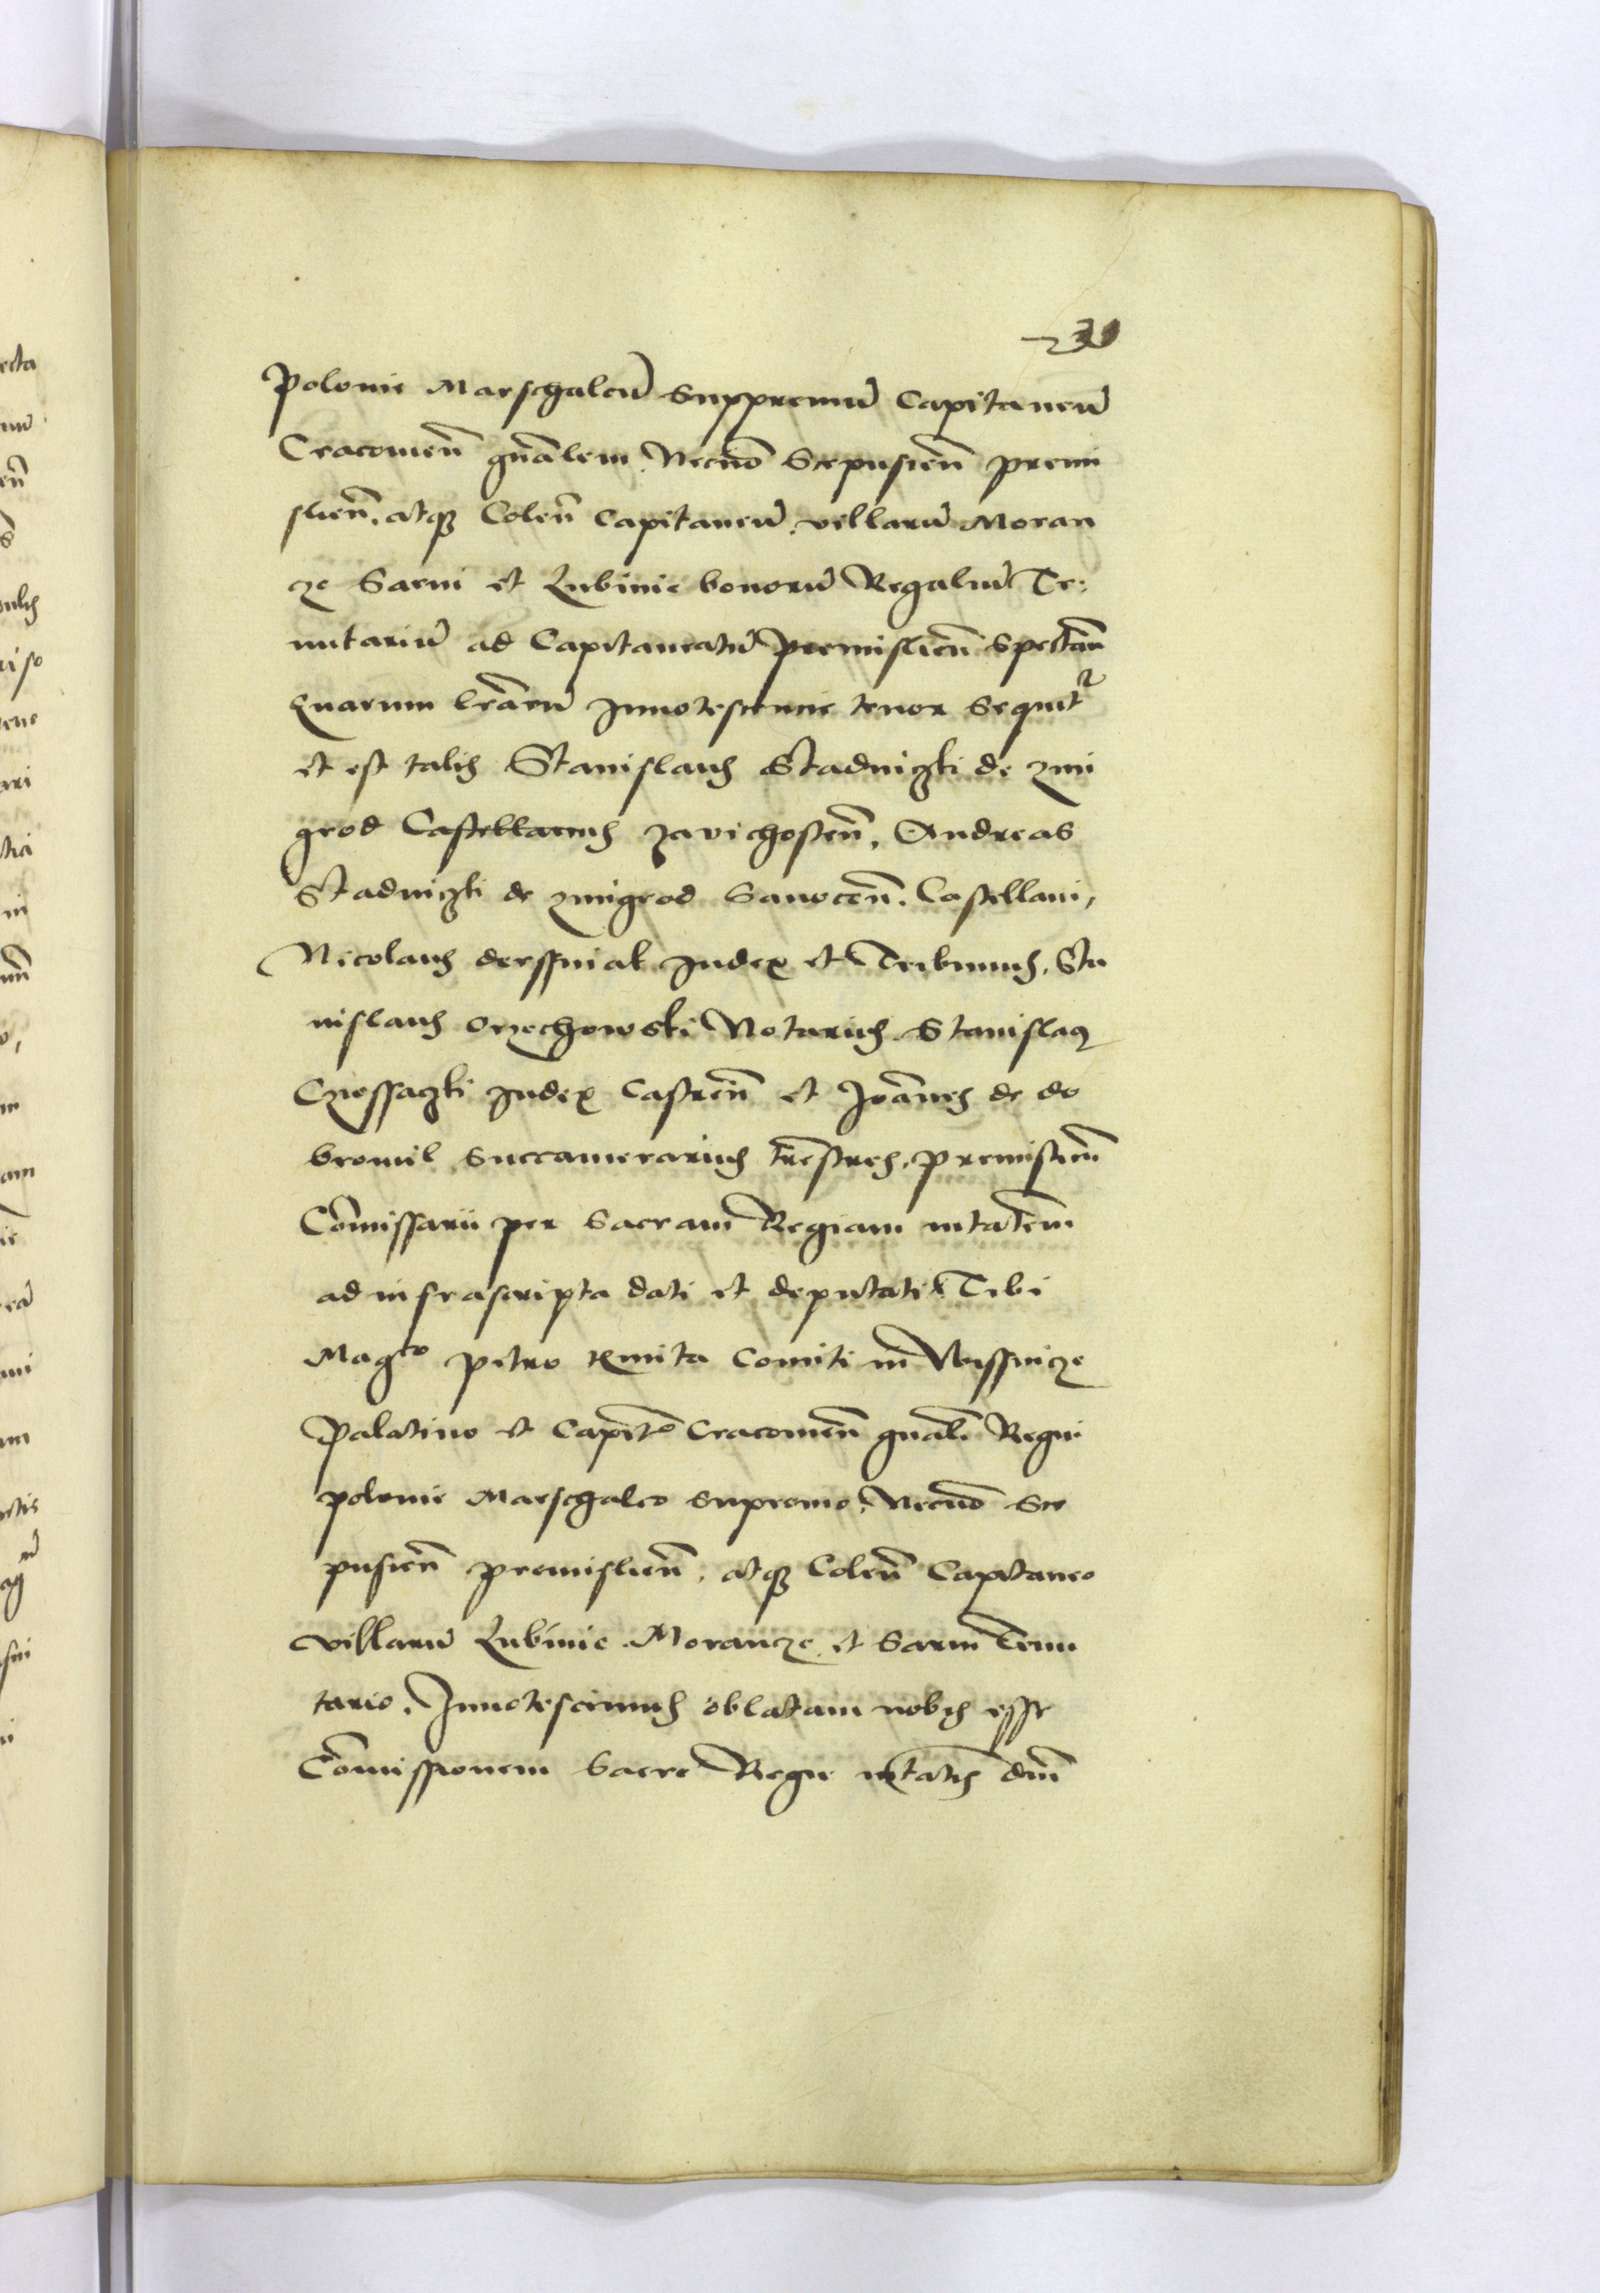 Polonie Marschalcū Suppremū Capitaneū
Cracovieñ gñalem Necnō Scepusieñ premi
slieñ, atq3 Coleñ Capitaneū, villarū Moran
cze Sarni et Lubinie bonorū Regaliū Te:
nutariū ad Capitaneatū Premislieñ Spectañ
Quarum lrarū Innotescencie tenor Sequitr
et est talis Stanislaus Stadniczki de zmi
grod Castellanus zavichosteñ, Andreas
Stadniczki de zmigrod Sanoceñ. Castellani,
Nicolaus derssniak Judex et Tribunus, Sta
nislaus Orzechowski Notarius Stanislaus
Judex Castreñ et Joānes de do
bromil Succamerarius trestres, Premislieñ
Cōmissarii per Sacram Regiam mtatem
ad infrascripta dati et deputati Tibi
Magco Petro Kmita Comiti in Wissnicze
Palatino et Capitō Cracovieñ gñali Regni
polonie Marschalco supremo, Necnō Sce
pusieñ premislieñ, atq3 Coleñ Capitaneo
villarū Lubinie Morancze et Sarni Tenu
tario, Innotescimus oblatam nobis esse
Cōmissionem Sacre Regie mtatis dñi